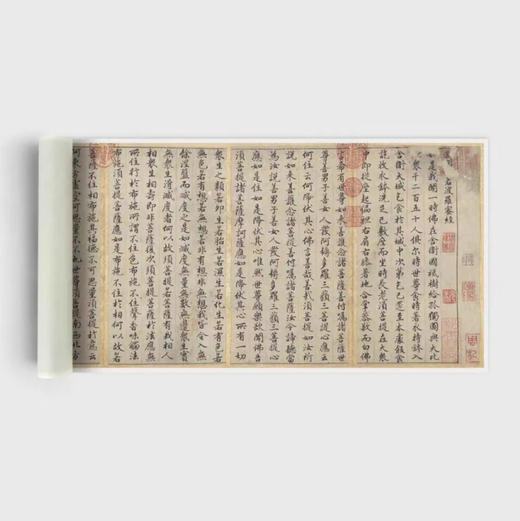 若波羅密經
如是我聞一時佛在舍衛國祇樹給孤獨園與大比
衆千二百五十人俱爾時世尊食時著衣持鉢入
舍衛大城乞食於其城中次第乞已還至本處飯食
訖收衣鉢洗足已敷座而坐時長老須菩提在大衆
中即從座起偏袒右肩右膝著地合掌恭敬而白佛
言希有世尊如來善護念諸菩薩善付囑諸菩薩世
尊善男子善女人發阿耨多羅三藐三菩提心應云
何住云何降伏其心佛言善哉善哉須菩提如汝所
說如來善護念諸菩薩善付囑諸菩薩汝今諦聽當
為汝說善男子善女人發阿耨多羅三藐三菩提心
應如是住如是降伏其心唯然世尊願樂欲聞佛告
須菩提諸菩薩摩訶薩應如是降伏其心所有一切
衆生之類若卵生若胎生若濕生若化生若有色若
無色若有想若無想若非有想非無想我皆令入無
餘涅槃而滅度之如是滅度無量無數無邊衆生實
無衆生得滅度者何以故須菩提若菩薩有我相人
相衆生相壽者即非菩薩復次須菩提菩薩於法應無
所住行於布施所謂不住色布施不住聲香味觸法
布施須菩提菩薩應如是布施不住於相何以故若
菩薩不住相布施其福德不可思量須菩提於意云
何東方虛空可思量不不也世尊須菩提南西北方